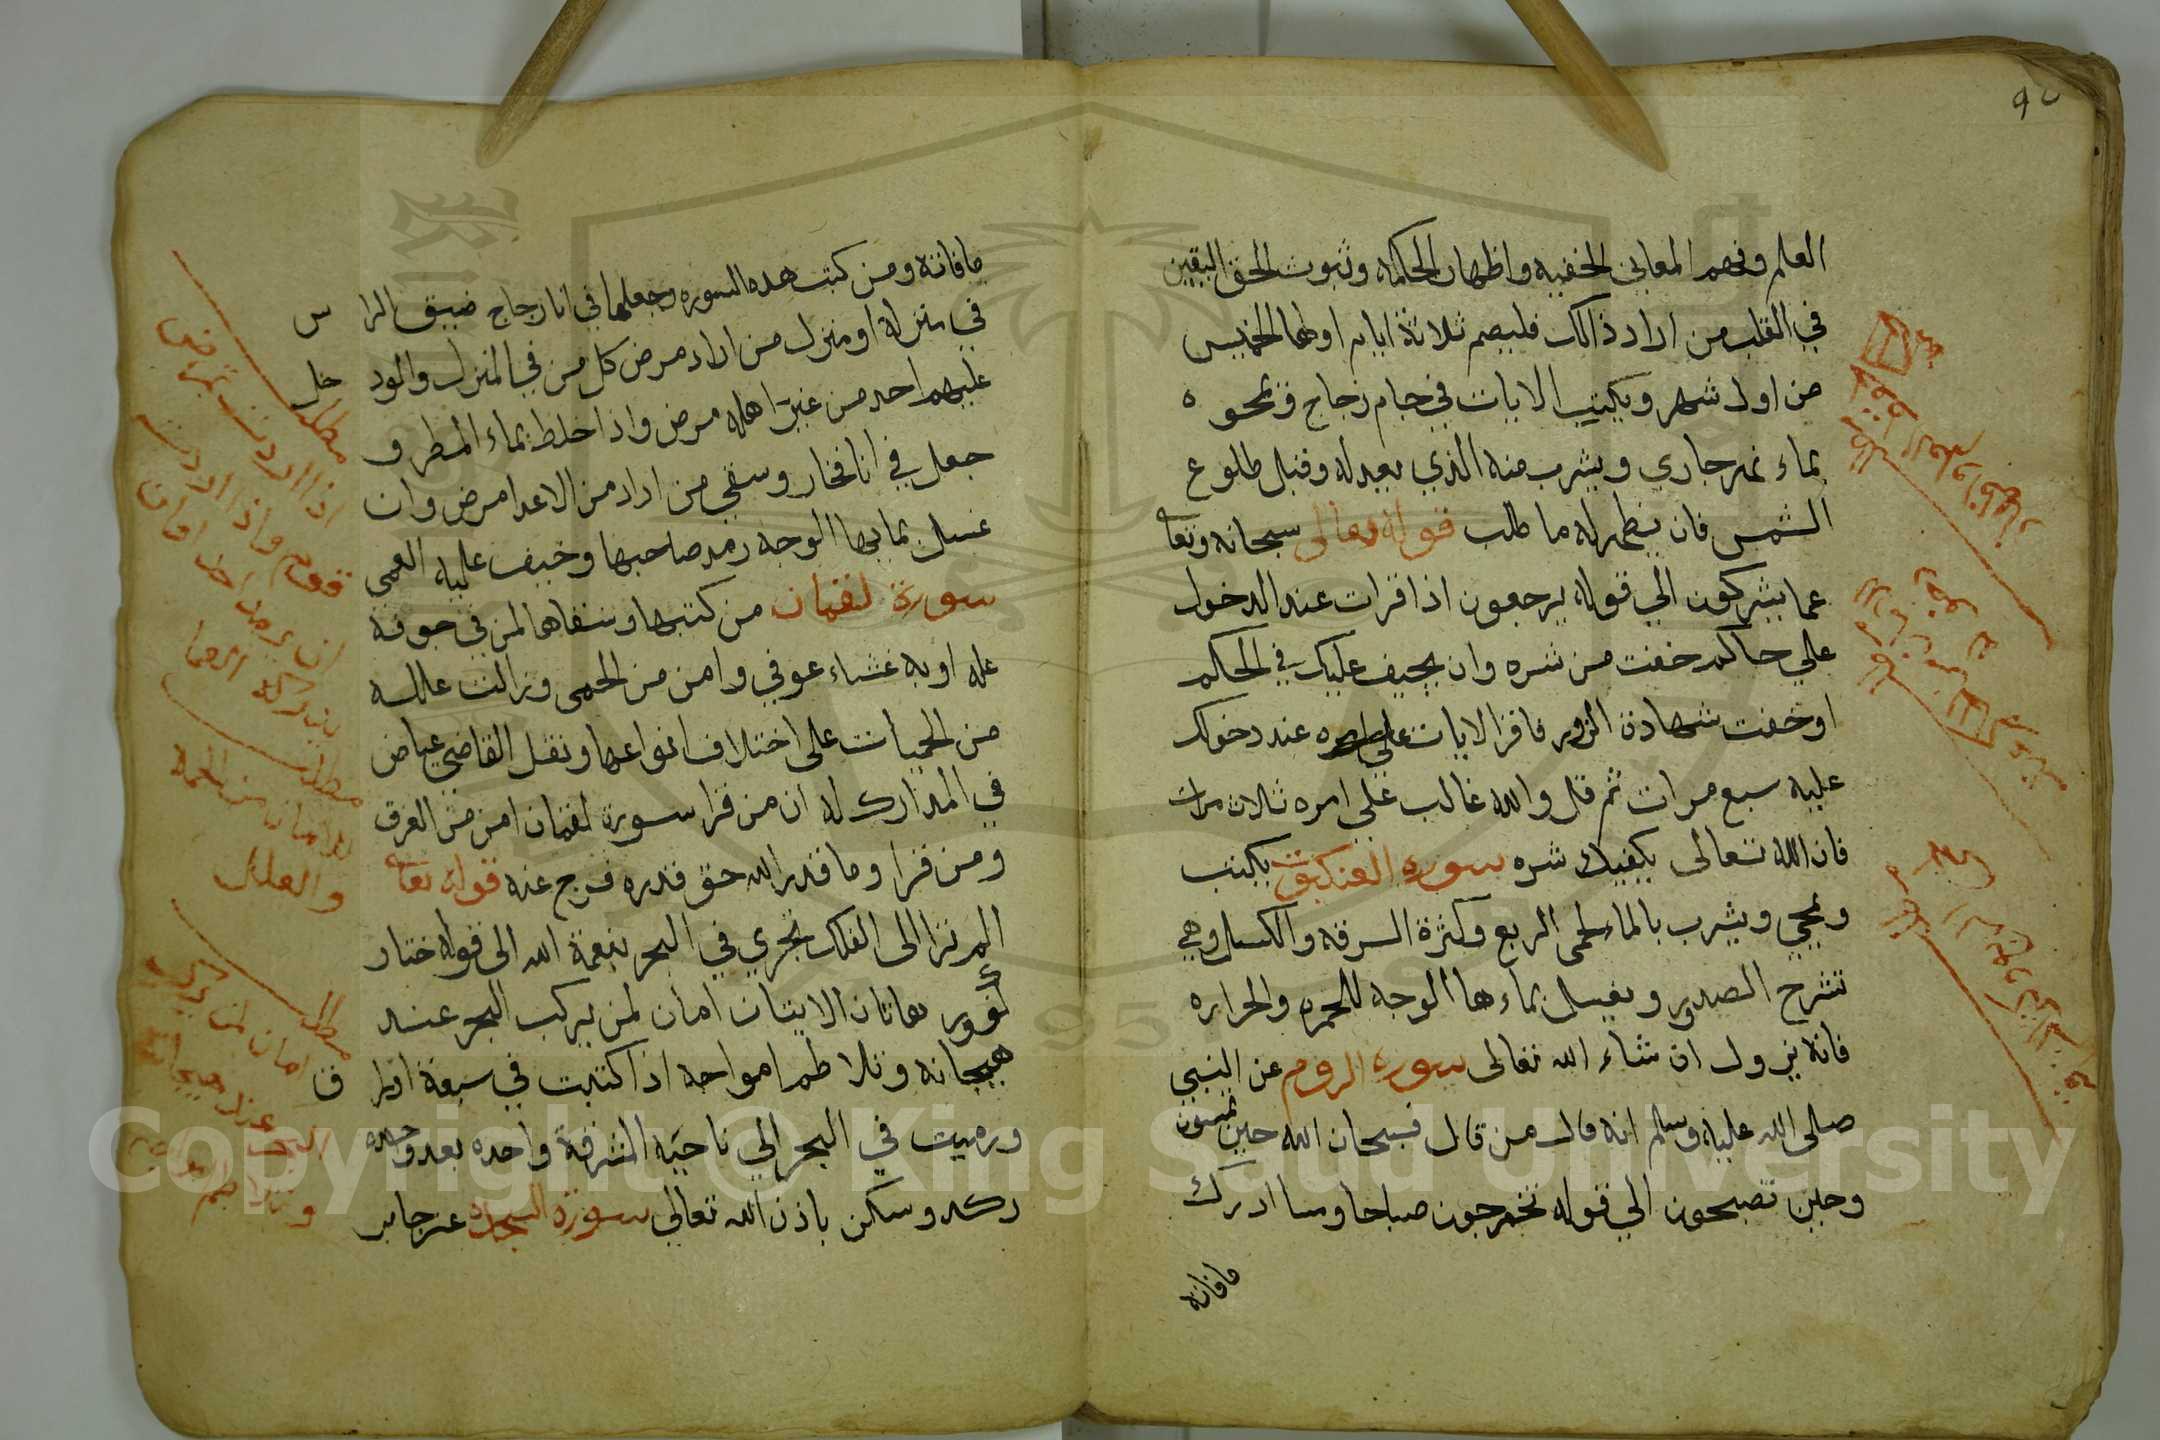 العلم وفهم المعاني الخفيه واظهار الحكمه وثبوت الحق اليقين
في القلب من اراد ذالك فليصم ثلاثة ايام اولها الخميس
من اول شهر ويكتب الايات في جام زجاج ونحوه
بماء نهر جاري ويشرب منه الذي يعبد له وقبل طلوع
الشمس فان يظهر له ما طلب قوله تعالى سبحانه وتعا
عما يشركون الي قوله يرجعون اذا قرات عند الدخول
علي حاكم خفت من شره وان يحيف عليك في الحكم
او خفت شهادة الزور فاقرا الايات عند دخولك
عليه سبع مرات ثم قل والله غالب علي امره ثلاث مرات
فان الله تعالى يكفيك شره سوره العنكبوت يكتب
ويمحي ويشرب بالماء لحمى الربع وكثرة السرقه والكسل وهي
تشرح الصدور ويغسل بماءها الوجه للحمره والحراره
فانه يزول ان شاء الله تعالى سوره الروم عن النبي
صلى الله عليه وسلم انه قال من قال فسبحان الله حين تمسون
وحين تصبحون الي قوله تخرجون صباحا ومسا ادرك
مافاته
مافاته ومن كتب هذه السوره وجعلها في انا زجاج ضيق الراس
في منزله او منزل من اراد مرض كل من في المنزل والودخل
عليهم احد من غير اهله مرض واذا خلط بماء المطر و
جعل في انا فخار وسقي من اراد من الاعدا مرض وان
غسل بمايها الوجه رمد صاحبها وخيف عليه العمى
سورة لقمان من كتبها وسقاها لمن في جوفه
عله او به غشاء عوفي وامن من الحمى وزالت علله
من الحميات على اختلاف انواعها ونقل القاضي عياض
في المدارك له ان من قرا سورة لقمان امن من الغرق
ومن قرا وما قدر الله حق قدره فرج عنه قوله تعا
الم تر الى الفلك تجري في البحر بنعمة الله الى قوله ختار
كفور هاتان الايتان امان لمن يركب البحر عند
هيجانه وتلاطم امواجه اذا كتبت في سبعة اوراق
ورميت في البحر الي ناحية المشرق واحده بعد وحده
ركد وسكن باذن الله تعالي سورة السجده عن جابر
مطلب
اذا اردت تمرض
قوم واذا اردت
مطلب
للامان من الحمه
والعلل
مطلب
امان لمن يركب
البحر عند هيجانه